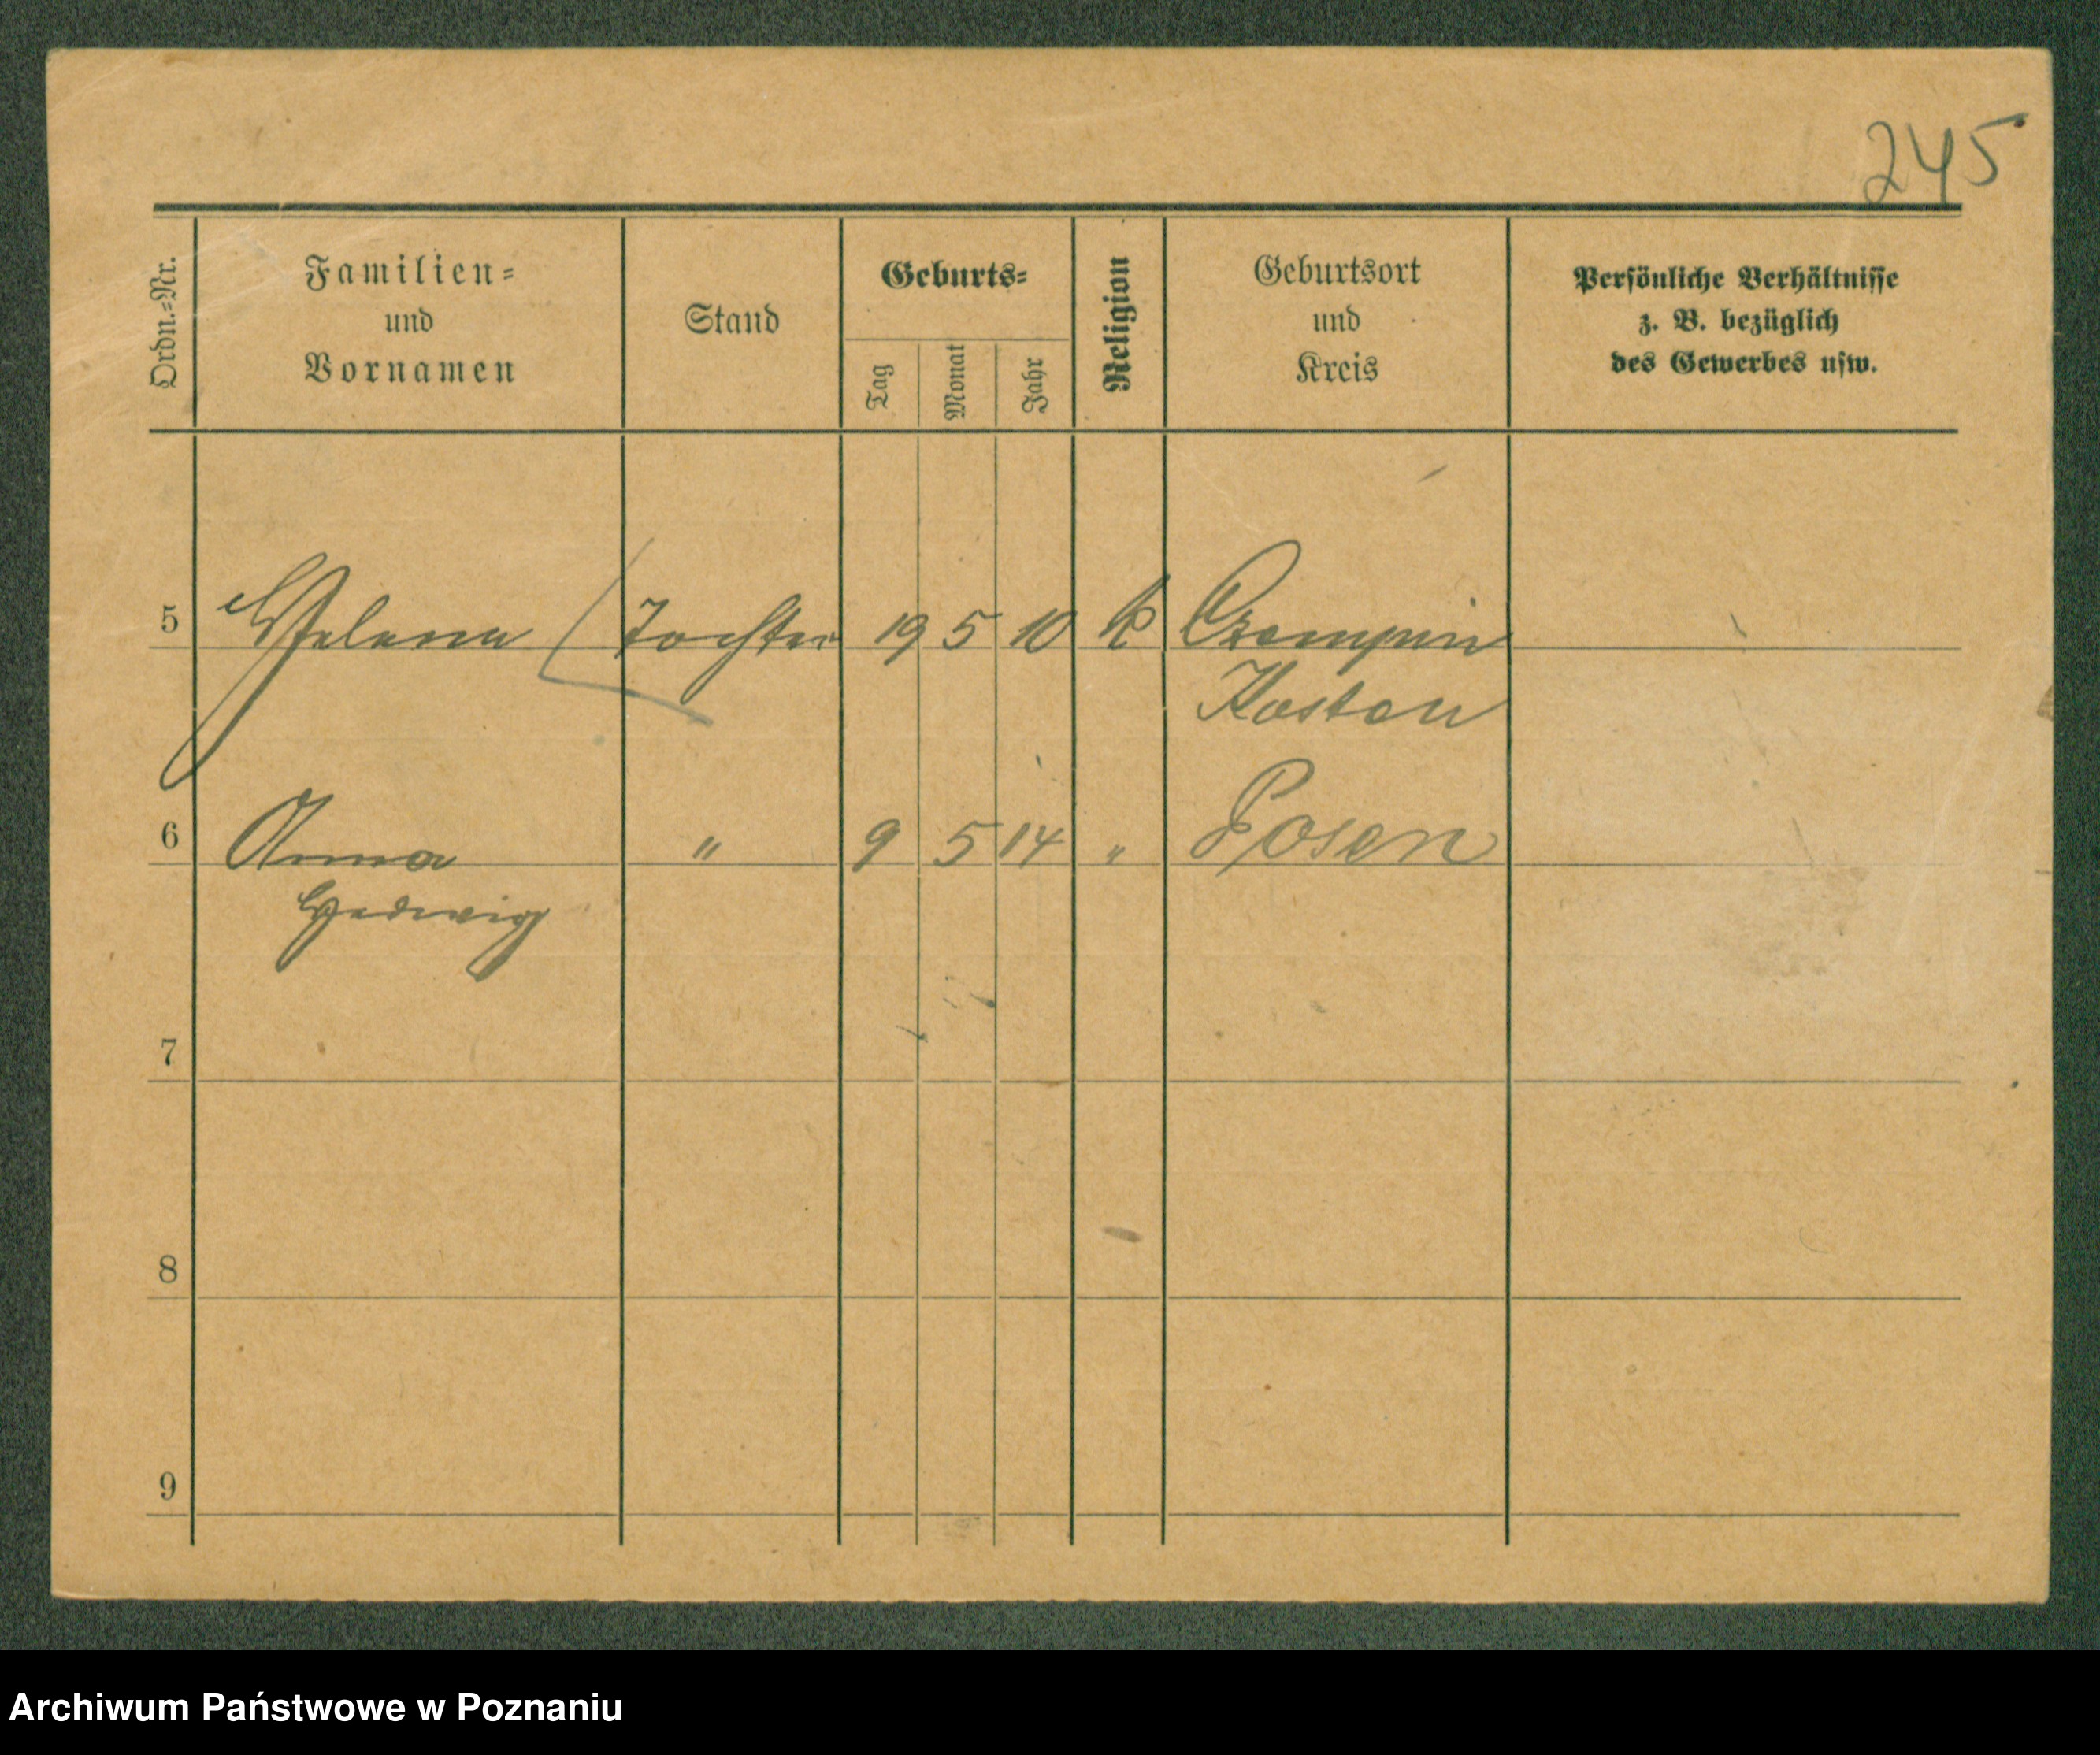 245
Ordn.-Nr.
Familien-
und
Vornamen
Stand
Geburts-
Tag
Monat
Jahr
Religion
Geburtsort
und
Kreis
Persönliche Verhältnisse
z. B. bezüglich
des Gewerbes usw.
5 Helena Tochter 19 5 10 k Czempin
Kosten
6 Anna " 9 5 14 " Posen
Hedwig
7
8
9
Archiwum Państwowe w Poznaniu